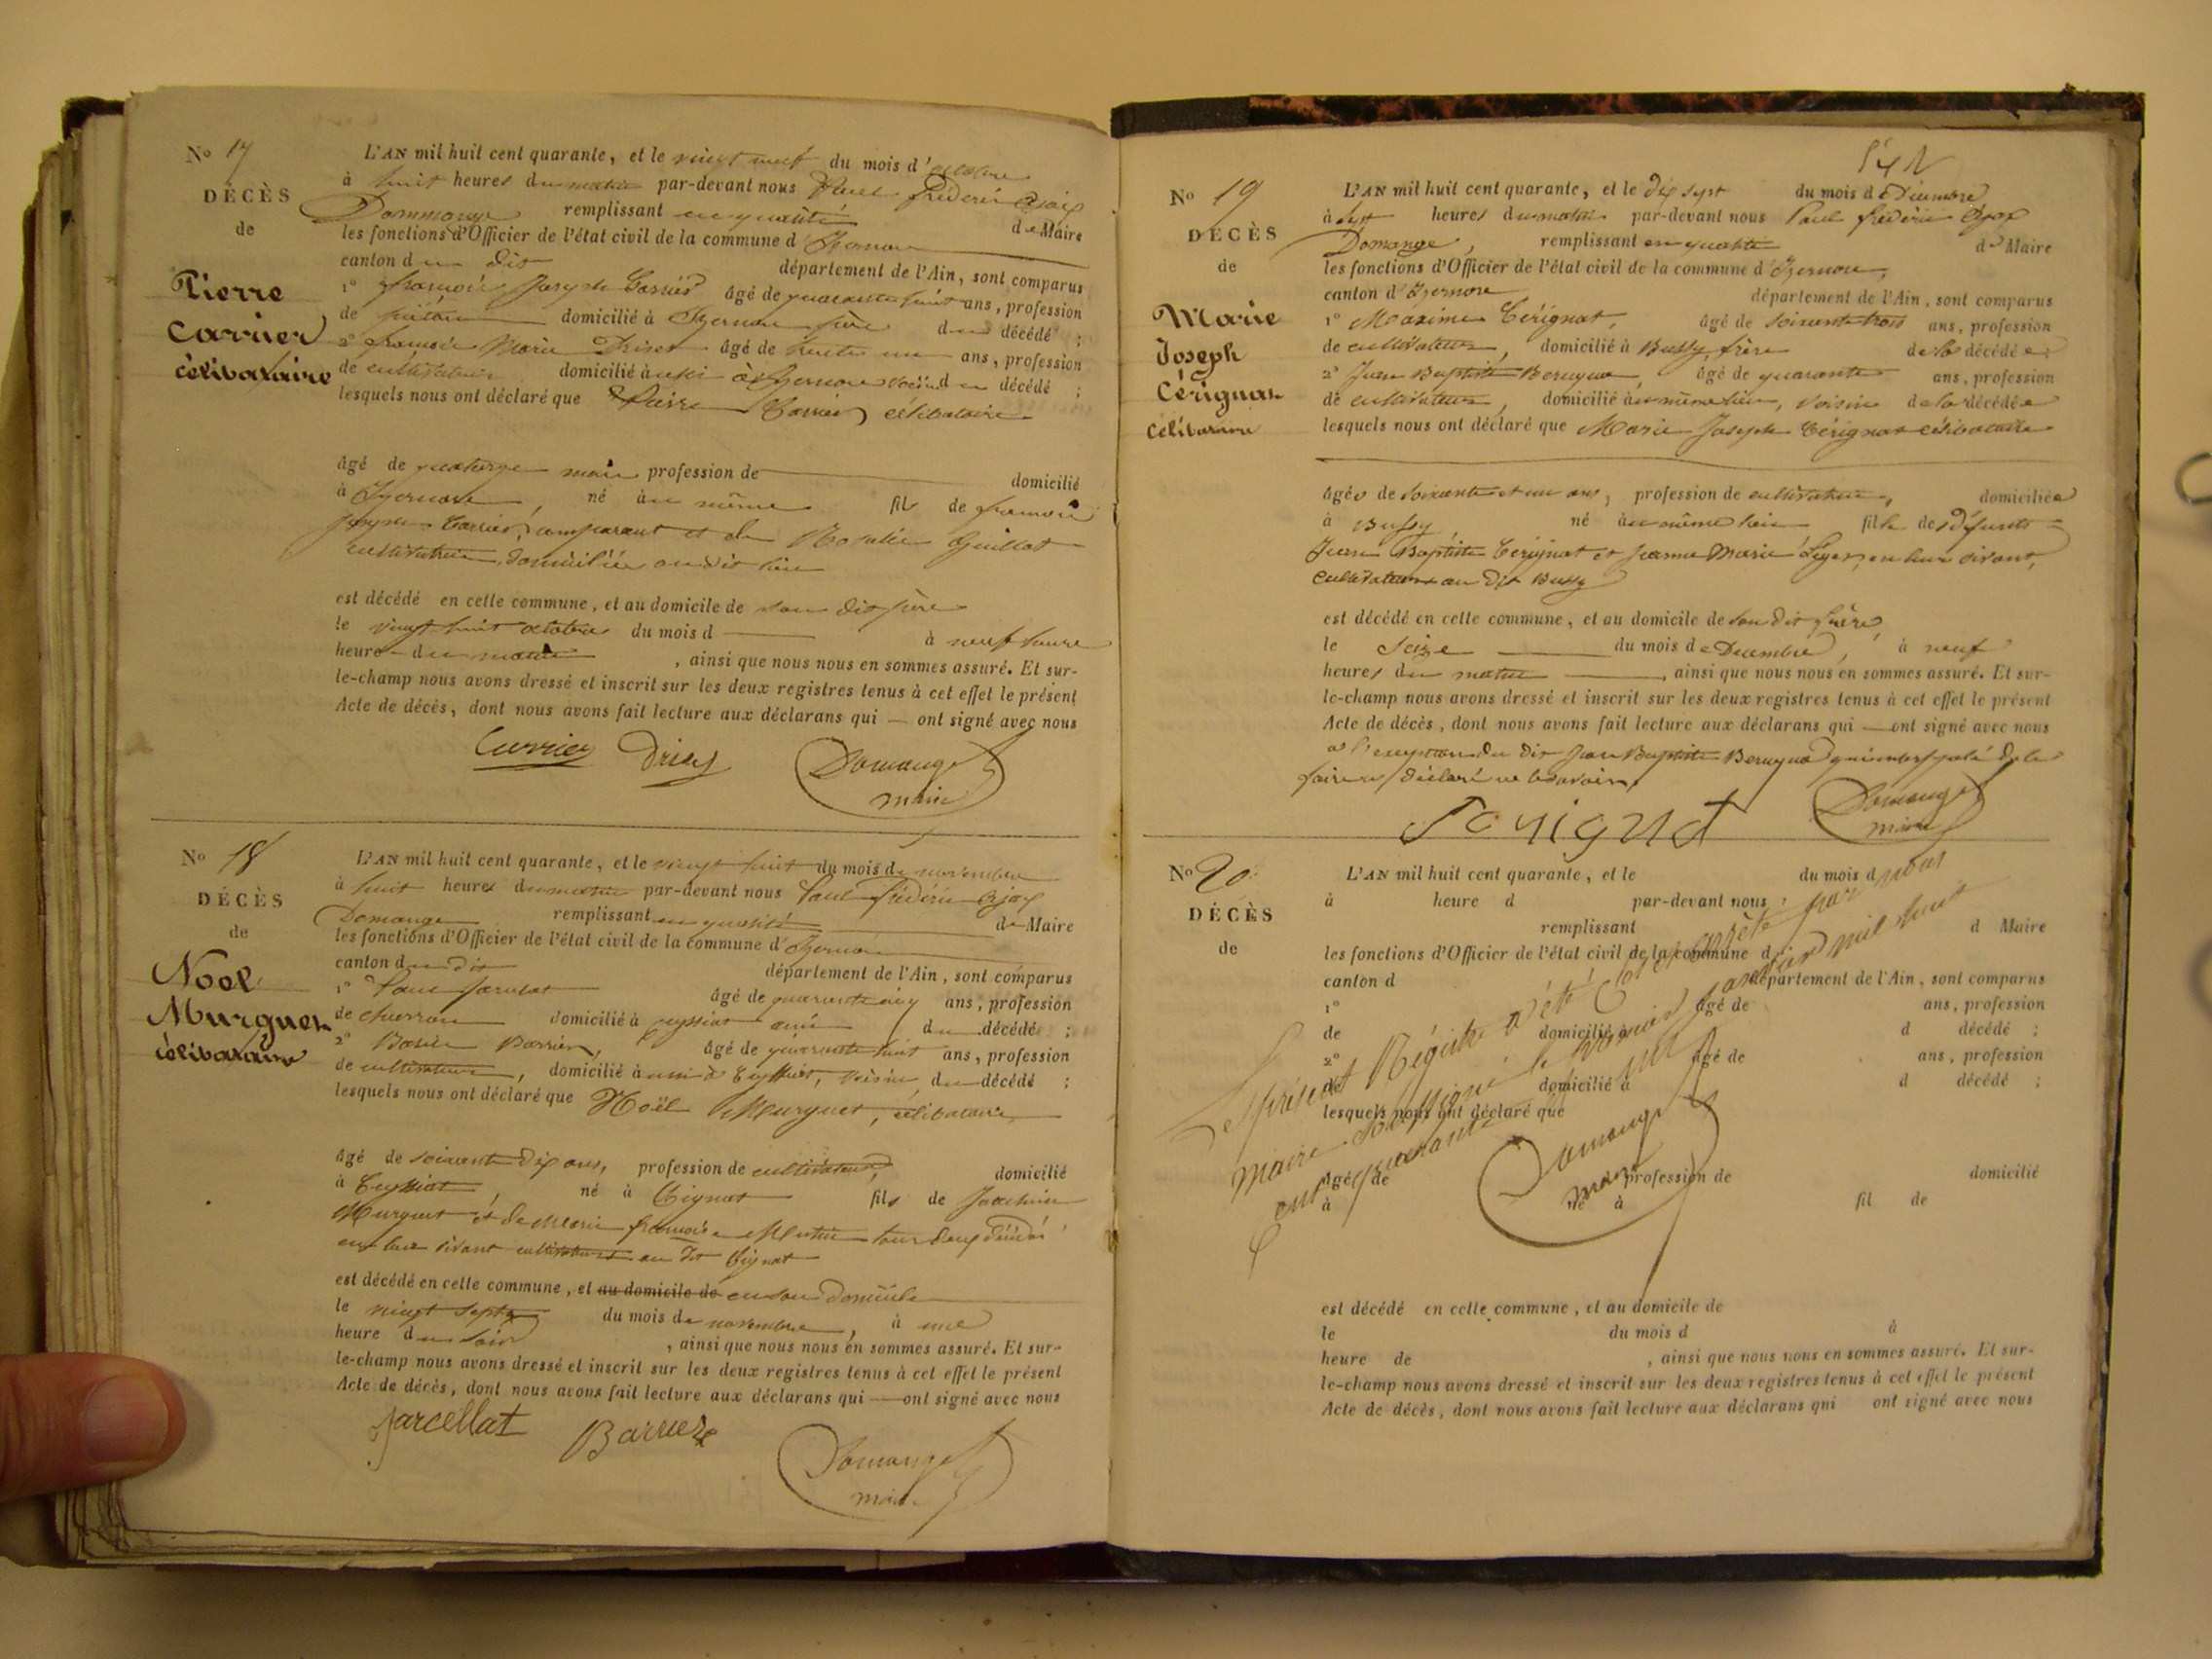 No 17
DÉCÈS
de
Pierre
Carrier
célibataire
L'AN mil huit cent quarante, et le vingt neuf du mois d'octobre
à huit heures du matin par-devant nous Paul frédéric Ajax
Dommange remplissant en qualité de Maire
les fonctions d'Officier de l'état civil de la commune d'Izernore
canton du dit département de l'Ain, sont comparus
1° françois Joseph Carrier âgé de quarante huit ans, profession
de domicilié à Izernore père du décédé ;
2° françois Marie Drisey âgé de trente un ans, profession
de cultivateur domicilié aussi à Izernore voisin du décédé ;
lesquels nous ont déclaré que Pierre Carrier célibataire
âgé de quatorze mois profession de domicilié
à Izernore, né au même fils de françois
Joseph Carrier, comparant et de Rosalie Guillot
cultivatrice, domiciliée au dit lieu
est décédé en cette commune, et au domicile de son dit père
le vingt huit octobre du mois d à neuf heure
heure du matin, ainsi que nous nous en sommes assuré. Et sur-
le-champ nous avons dressé et inscrit sur les deux registres tenus à cet effet le présent
Acte de décès, dont nous avons fait lecture aux déclarans qui — ont signé avec nous
Carrier Drisey Domange
maire
No 18
DÉCÈS
de
Noel
Murguet
célibataire
L'AN mil huit cent quarante, et le vingt huit du mois de novembre
à huit heures du matin par-devant nous Paul frédéric Ajax
Domange remplissant en qualité de Maire
les fonctions d'Officier de l'état civil de la commune d'Izernore
canton du dit département de l'Ain, sont comparus
1° âgé de quarante six ans, profession
de charron domicilié à Ceyssiat ami du décédé ;
2° Barrier, âgé de quarante huit ans, profession
de cultivateur, domicilié aussi à Ceyssiat, voisin du décédé ;
lesquels nous ont déclaré que Noël Murguet, célibataire
âgé de soixante dix ans, profession de cultivateur, domicilié
à Ceyssiat, né à Tignat fils de Joachim
Murguet et de Marie françoise tous deux décédés
en leur vivant cultivateurs au dit Tignat
est décédé en cette commune, et au domicile de en son domicile
le vingt sept du mois de novembre, à une
heure du soir, ainsi que nous nous en sommes assuré. Et sur-
le-champ nous avons dressé et inscrit sur les deux registres tenus à cet effet le présent
Acte de décès, dont nous avons fait lecture aux déclarans qui — ont signé avec nous
Jarcellat Barrier
Domange
maire
No 19
DÉCÈS
de
Marie
Joseph
Cérignat
célibataire
L'AN mil huit cent quarante, et le dix sept du mois de Décembre
à sept heures du matin par-devant nous Paul frédéric Ajax
Domange, remplissant en qualité de Maire
les fonctions d'Officier de l'état civil de la commune d'Izernore,
canton d'Izernore département de l'Ain, sont comparus
1° Maxime Cérignat, âgé de soixante trois ans, profession
de cultivateur, domicilié à Bussy, frère de la décédée ;
2° Jean Baptiste Beruyna, âgé de quarante ans, profession
de cultivateur, domicilié au même lieu, voisin de la décédée
lesquels nous ont déclaré que Marie Joseph Cérignat célibataire
âgée de soixante et un ans, profession de cultivatrice, domiciliée
à Bussy né au même lieu fille des défunts
Jean Baptiste Cérignat et Jeanne Marie Leger, en leur vivant,
cultivateurs au dit Bussy
est décédé en cette commune, et au domicile de son dit frère
le seize du mois de Décembre, à neuf
heures du matin, ainsi que nous nous en sommes assuré. Et sur-
le-champ nous avons dressé et inscrit sur les deux registres tenus à cet effet le présent
Acte de décès, dont nous avons fait lecture aux déclarans qui — ont signé avec nous
à l'exception du dit Jean Baptiste Beruyna qui interpelé de le
faire a déclaré ne le savoir.
Serignat Domange
maire
No 20
DÉCÈS
de
L'AN mil huit cent quarante, et le du mois d
à heure d par-devant nous
remplissant d Maire
les fonctions d'Officier de l'état civil de la commune d
canton d département de l'Ain, sont comparus
1° âgé de ans, profession
de domicilié à d décédé ;
2° âgé de ans, profession
de domicilié à d décédé ;
lesquels nous ont déclaré que
âgé de profession de domicilié
à né à fil de
est décédé en cette commune, et au domicile de
le du mois d à
heure de, ainsi que nous nous en sommes assuré. Et sur-
le-champ nous avons dressé et inscrit sur les deux registres tenus à cet effet le présent
Acte de décès, dont nous avons fait lecture aux déclarans qui ont signé avec nous
Le présent Régistre a été Clos et arrêté par nous
Maire soussigné le premier janvier mil huit
cent quarante un
Domange
maire